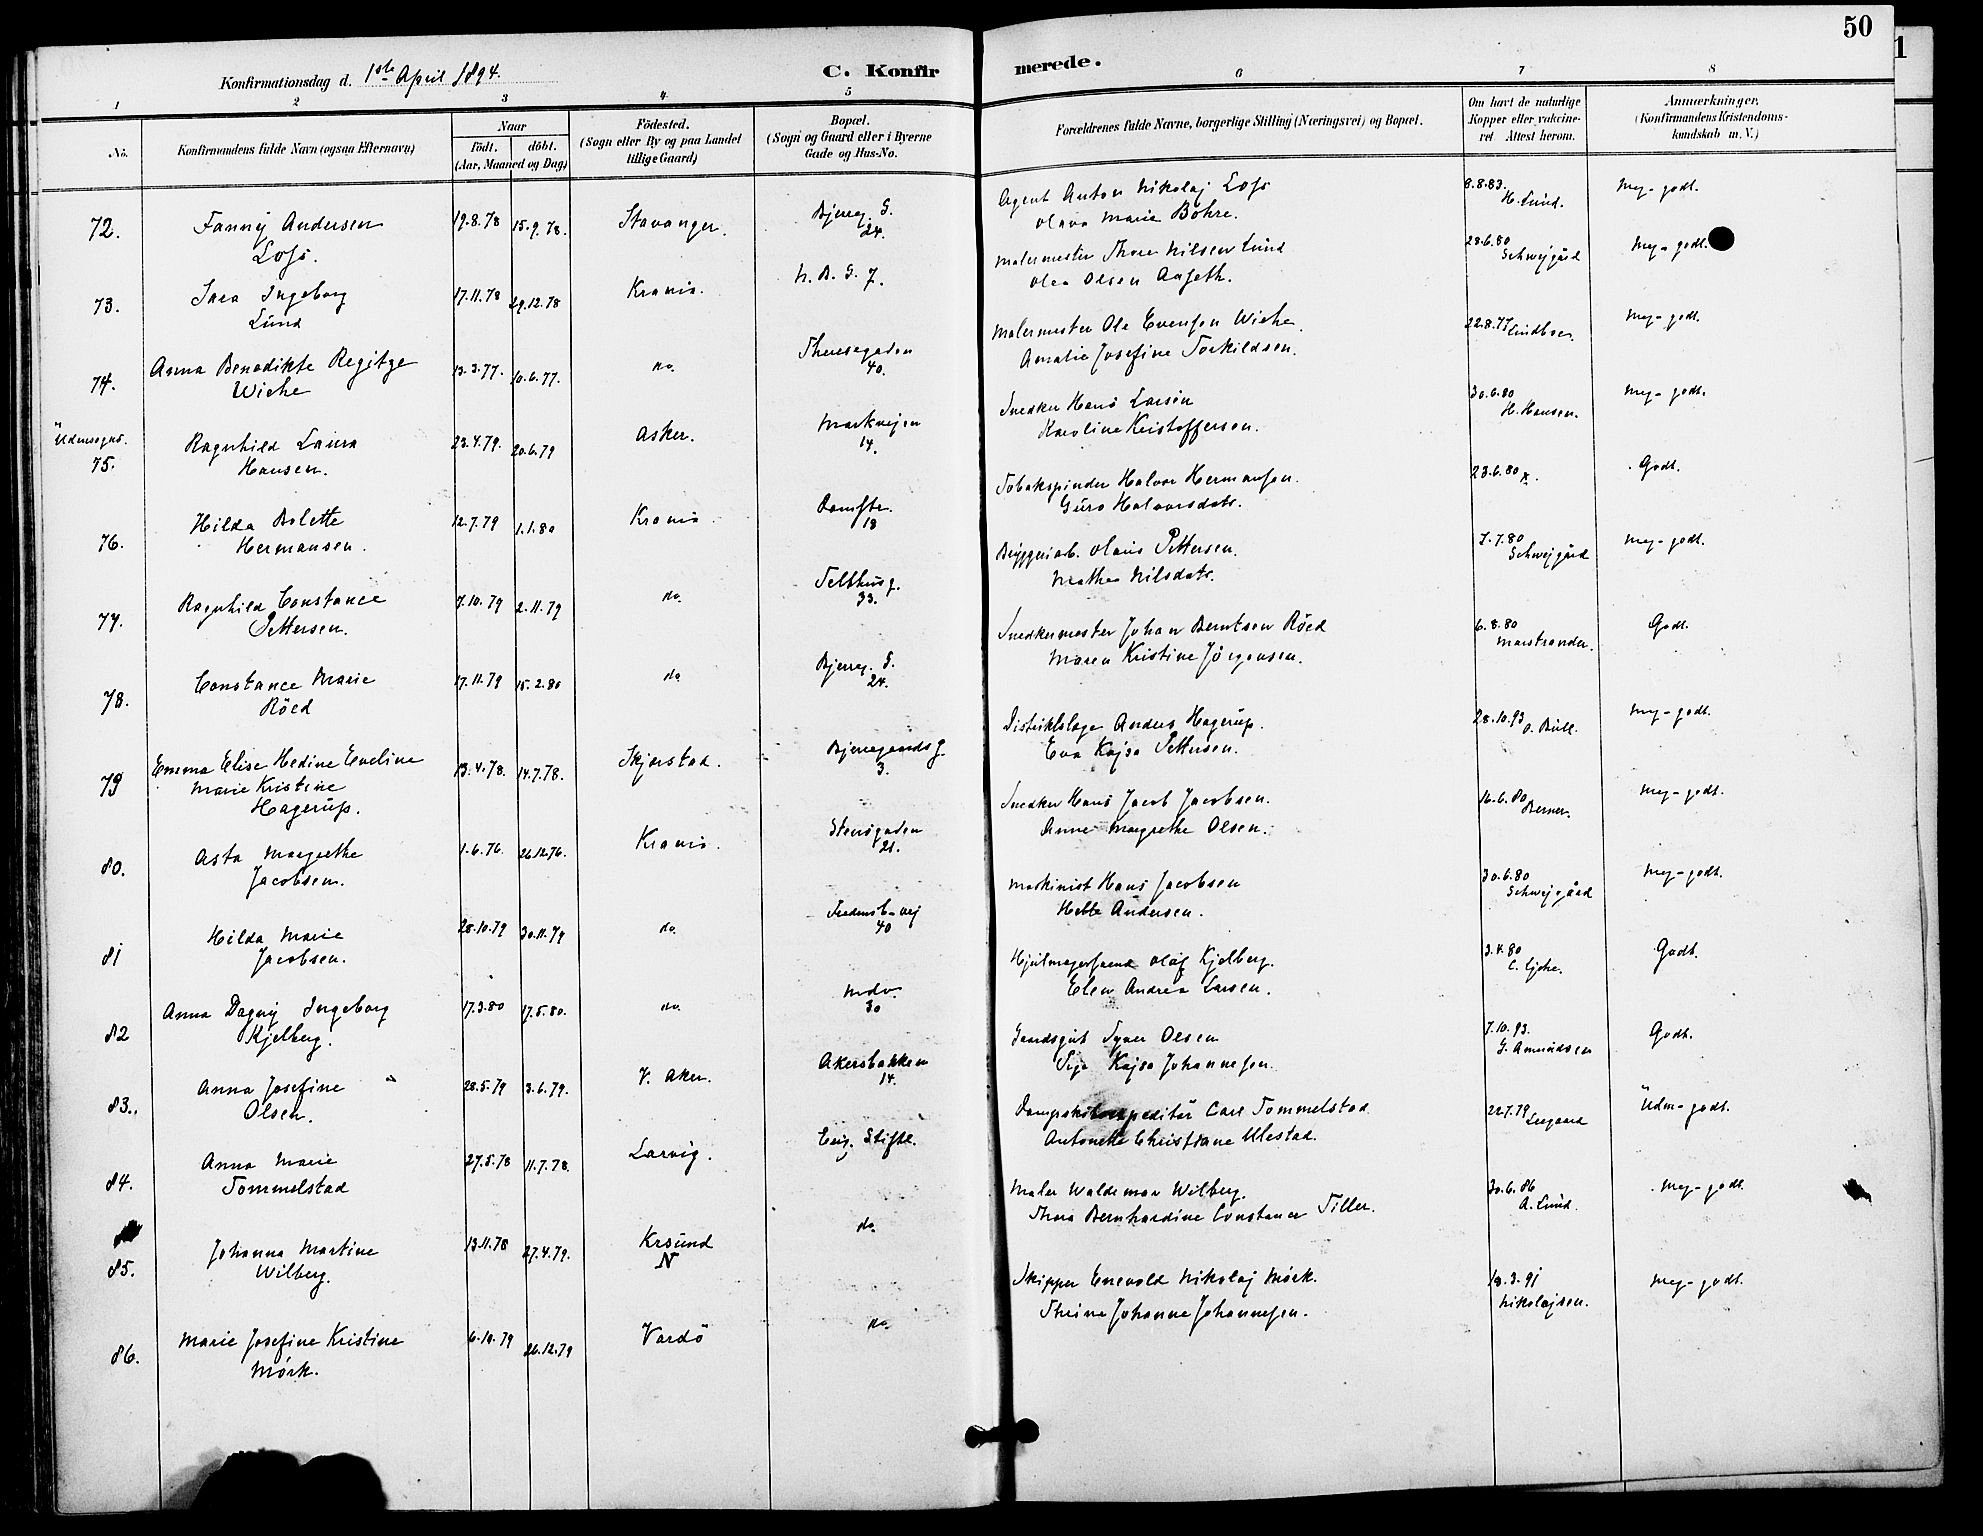 50
1
Konfirmationsdag d. 1ste April 1894.
C. Konfir
merede.
1 2 3 4 5 6 7 8
No.
Konfirmandens fulde Navn (ogsaa Efternavn)
Naar
födt. döbt.
(Aar, Maaned og Dag)
Födested.
(Sogn eller By og paa Landet
tillige Gaard)
Bopæl.
(Sogn og Gaard eller i Byerne
Gade og Hus-No.
Forældrenes fulde Navne, borgerlige Stilling (Næringsvei) og Bopæl.
Om havt de naturlige
Kopper eller vakcine-
ret. Attest herom.
Anmærkninger.
(Konfirmandens Kristendoms-
kundskab m. V.)
72. Fanny Andersen 19.8.78 15.9.78. Stavanger. Bjerreg. G. Agent Anton Nikolaj Lofs 8.8.83. Meg-godt.
Lofs. 24. Olava Marie Böhre. H. Lund.
73. Sara Ingeborg 17.11.78 29.12.78 Krania. N. B. G. 7. Malermester Thore Nilsen Lund 28.6.80 Meg-godt.
Lund Olea Olsen Aaseth. Schwejgård
74. Anna Benedikte Regitze 13.3.77. 10.6.77. do. Theresegaden Malermester Ole Evensen Wiche 22.8.77 Lindboe. Meg-godt.
Wiche 40. Amalie Josefine Torkildsen.
Udensogns.
75. Ragnhild Laura 23.4.79. 20.6.79 Asker. Markvejen Snedker Hans Larsen 30.6.80 Meg-godt.
Hansen. 14. Karoline Kristoffersen. H. Hansen.
76. Hilda Bolette 12.7.79 1.1.80 Krania. Damstr. Tobakspinder Halvor Hermansen. 23.6.80 Godt.
Hermansen. 18 Guro Halvorsdatr.
77. Ragnhild Constance 7.10.79 2.11.79 do. Telthusg. Bryggeriarb. Olaus Pettersen. 7.7.80 Meg-godt.
Pettersen. 33. Mathea Nilsdatr. Schwejgård
78. Constance Marie 17.11.79 15.2.80 do. Bjerreg. G. Snedkermester Johan Berntsen Röed 6.8.80 Godt.
Röed 24. Maren Kristine Jörgensen. Marstrander.
79 Emma Elise Hedine Eveline 13.4.78. 14.7.78. Skjerstad. Bjerregaardsg. Distriktslæge Anders Hagerup. 28.10.93 O. Bull. Meg-godt.
Marie Kristine 3. Eva Kajsa Pettersen.
Hagerup.
80. Asta Margrethe 1.6.76. 26.12.76. Krania. Stensgaden Snedker Hans Jacob Jacobsen. 16.6.80 Meg-godt.
Jacobsen. 21. Anne Margrethe Olsen. Berner.
81 Hilda Marie 28.10.79 30.11.79 do. Fredensb-vej Maskinist Hans Jacobsen 30.6.80 Meg-godt.
Jacobsen. 40 Hette Andersen. Schwejgård
82 Anna Dagny Ingeborg 17.3.80 17.5.80. do. Hjulmagersvend Olaf Kjelberg. 3.4.80 Godt.
Kjelberg. 30 Elen Andrea Larsen.
83. Anna Josefine 28.5.79 3.6.79. V. Aker. Akersbakken Gaardsgut Syver Olsen 7.10.93. Godt.
Olsen. 14. Kajsa Johannesen. G. Amundsen
84. Anna Marie 27.5.78 11.7.78. Larvig. Eug. Stiftl. Dampskibsexpeditör Carl Tommelstad 22.7.79 Udm-godt.
Tommelstad Antonette Christiane Ulestad. Leegaard
85. Johanna Martine 13.11.78 27.4.79. Krsund do. Maler Waldemar Wilberg. 30.6.86 Meg-godt.
Wilberg. N Thora Bernhardine Constance Tiller. A. Lund.
86. Marie Josefine Kristine 6.10.79 26.12.79 Vardö do. Skipper Enevold Nikolaj Mörk. 19.3.91 Meg-godt.
Mörk. Thrine Johanne Johannesen. Nikolajsen.